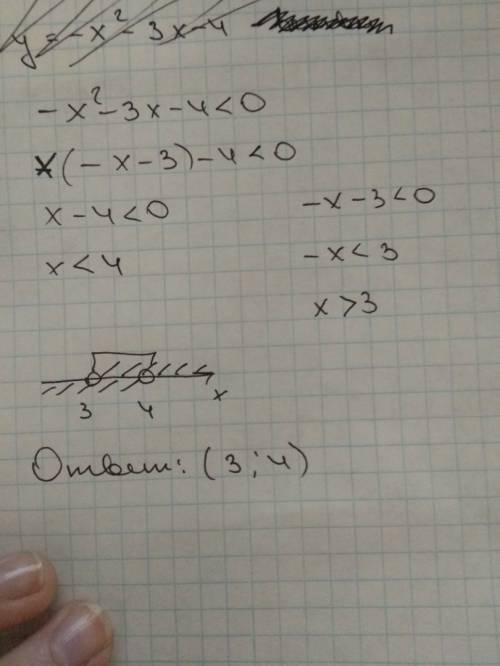 y = -x² - 3x - 4
-x² - 3x - 4 < 0
x(-x - 3) - 4 < 0
x - 4 < 0 -x - 3 < 0
x < 4 -x < 3
x > 3
3 4 x
Ответ: (3; 4)